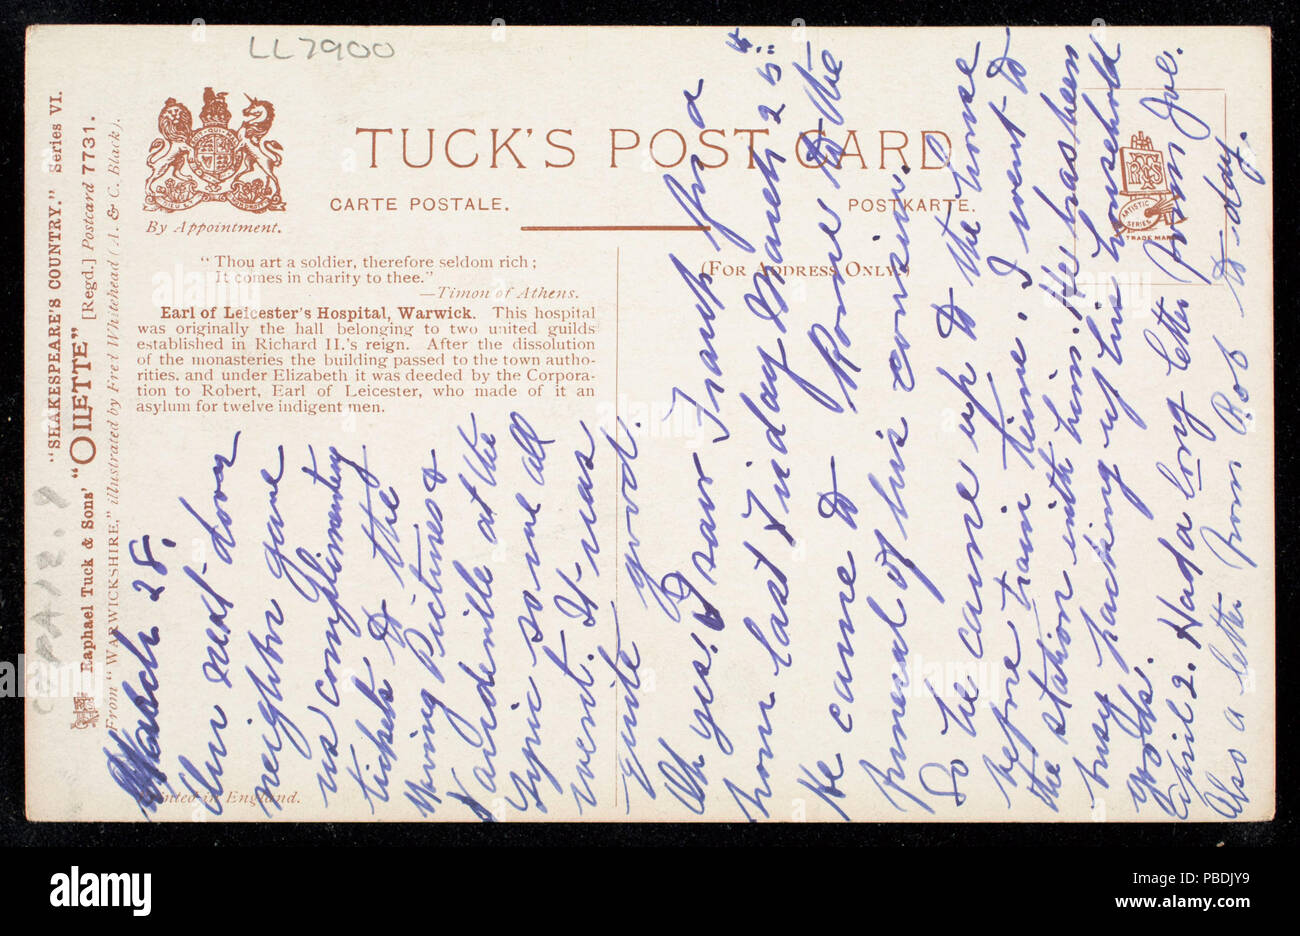 LL7900
"SHAKESPEARE'S COUNTRY." Series VI.
Raphael Tuck & Sons' "OILETTE" [Regd.] Postcard 7731.
From "WARWICKSHIRE," illustrated by Fred Whitehead (A. & C. Black).
By Appointment.
TUCK'S POST CARD
CARTE POSTALE.
POSTKARTE.
(FOR ADDRESS ONLY.)
ARTISTIC SERIES
TRADE MARK
"Thou art a soldier, therefore seldom rich;
It comes in charity to thee."
—Timon of Athens.
Earl of Leicester's Hospital, Warwick. This hospital
was originally the hall belonging to two united guilds
established in Richard II.'s reign. After the dissolution
of the monasteries the building passed to the town autho-
rities, and under Elizabeth it was deeded by the Corpora-
tion to Robert, Earl of Leicester, who made of it an
asylum for twelve indigent men.
Printed in England.
March 28.
Our next door
neighbor gave
us complimentary
tickets to the
Moving Pictures &
Vaudeville at the
Lyric so we all
went. It was
quite good.
Oh yes! I saw Frank for a
hour last Friday March 25th.
He came to Rome to the
funeral of his cousin.
So he came up to the house
before train time. I went to
the station with him. He has been
busy packing up his household
goods.
April 2. Had a long letter from Joe.
Also a letter from Rob to-day.
alamy
Image ID: PBDJY9
www.alamy.com